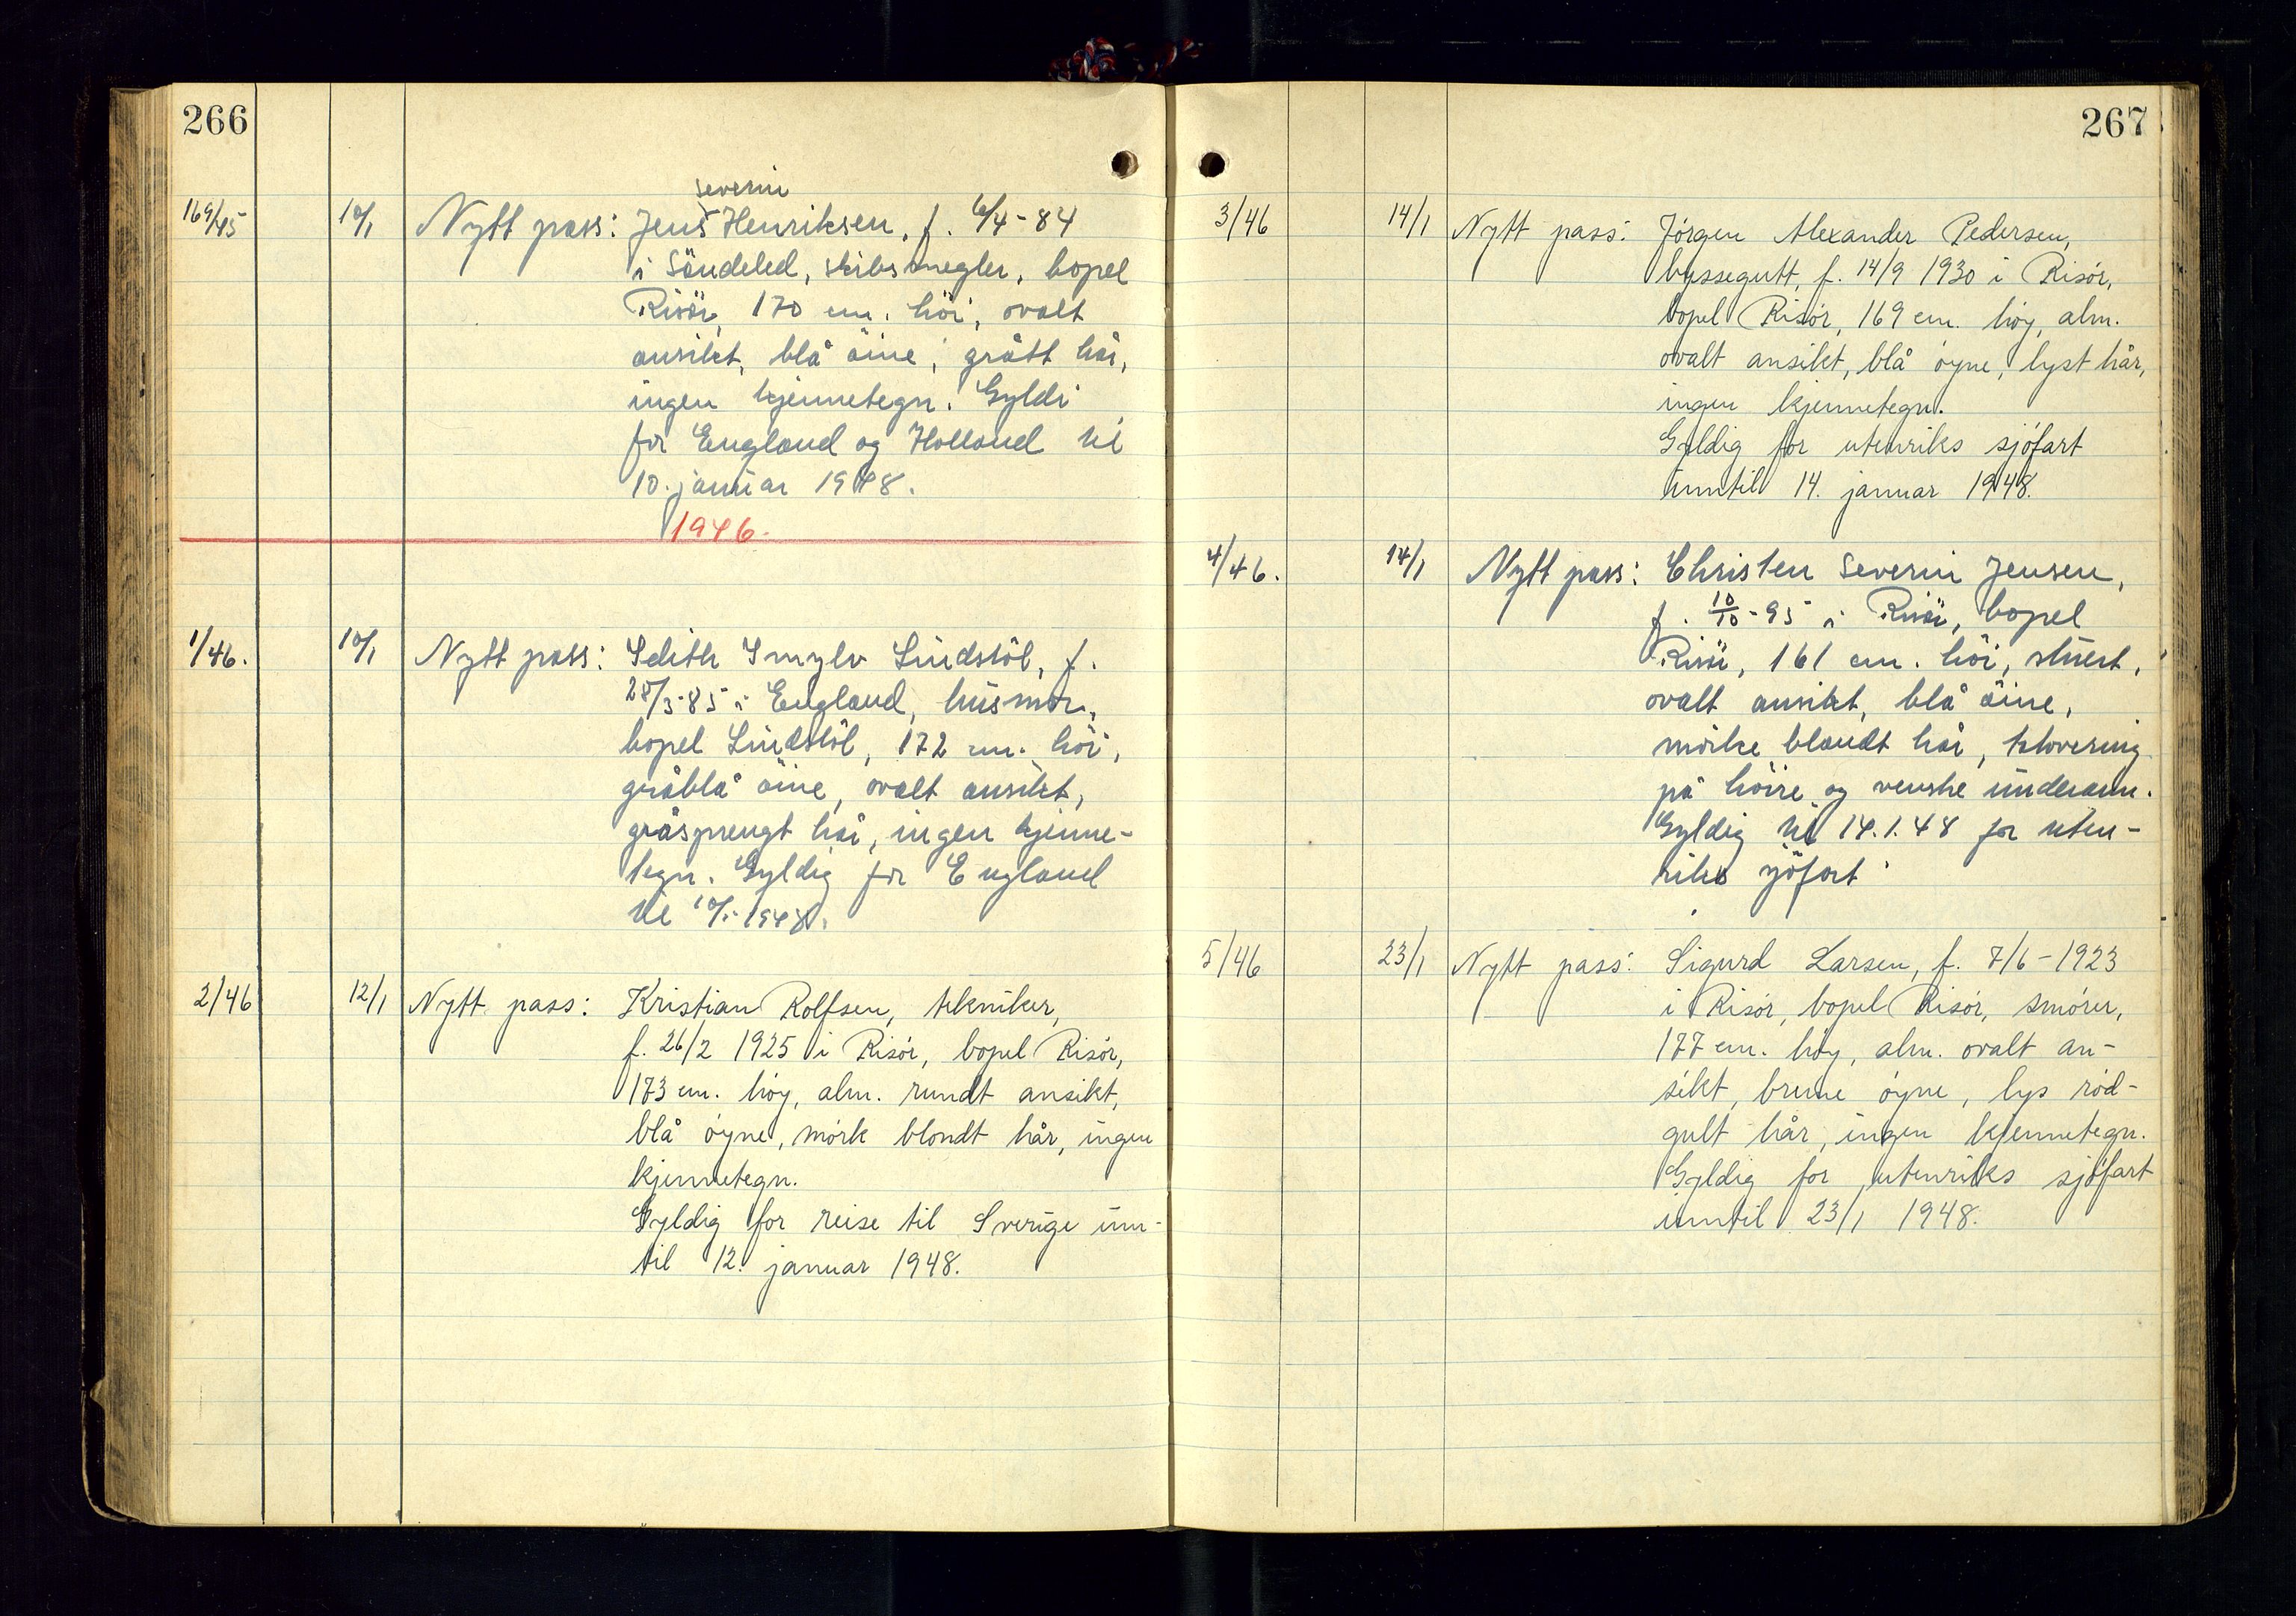 266
severin
169/45 10/1 Nytt pass: Jens Henriksen, f. 6/4-84
i Söndeled, skibsmegler, bopel
Risör, 170 cm. höi, ovalt
ansikt, blå öine, grått hår,
ingen kjennetegn. Gyldi
for England og Holland til
10. januar 1948.
1946.
1/46. 10/1 Nytt pass: Edith Lindstöl, f.
28/3-85 i England, husmor,
bopel Lindstöl, 172 cm. höi,
gråblå öine, ovalt ansikt,
gråsprengt hår, ingen kjenne-
tegn. Gyldig for England
til 10/1-1948.
2/46 12/1 Nytt pass: Kristian Rolfsen, tekniker,
f. 26/2 1925 i Risör, bopel Risör,
173 cm. höy, alm. rundt ansikt,
blå öyne, mörk blondt hår, ingen
kjennetegn.
Gyldig for reise til Sverige inn-
til 12. januar 1948.
267
3/46 14/1 Nytt pass: Jörgen Alexander Pedersen,
byssegutt, f. 14/9 1930 i Risör,
bopel Risör, 169 cm. höy, alm.
ovalt ansikt, blå öyne, lyst hår,
ingen kjennetegn.
Gyldig for utenriks sjöfart
inntil 14. januar 1948.
4/46. 14/1 Nytt pass: Christen Severin Jensen,
f. 10/10-95 i Risör, bopel
Risör, 161 cm. höi, stuert,
ovalt ansikt, blå öine,
mörke blondt hår, tatovering
på höire og venstre underarm.
Gyldig til 14.1.48 for uten-
riks sjöfart.
5/46 23/1 Nytt pass: Sigurd Larsen, f. 7/6-1923
i Risör, bopel Risör, smörer,
177 cm. höy, alm. ovalt an-
sikt, brune öyne, lys röd-
gult hår, ingen kjennetegn.
Gyldig for utenriks sjöfart
inntil 23/1 1948.